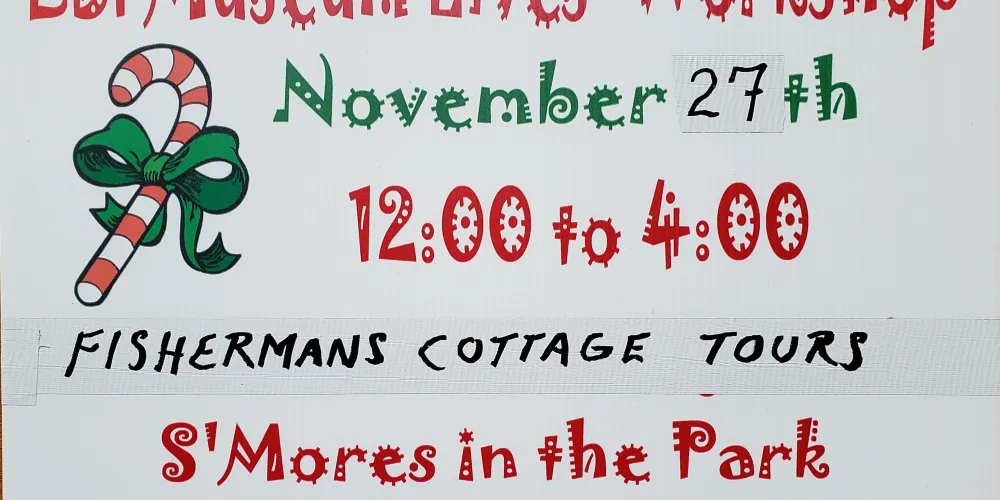 Museum Elves' Workshop
November 27th
12:00 to 4:00
FISHERMANS COTTAGE TOURS
S'Mores in the Park